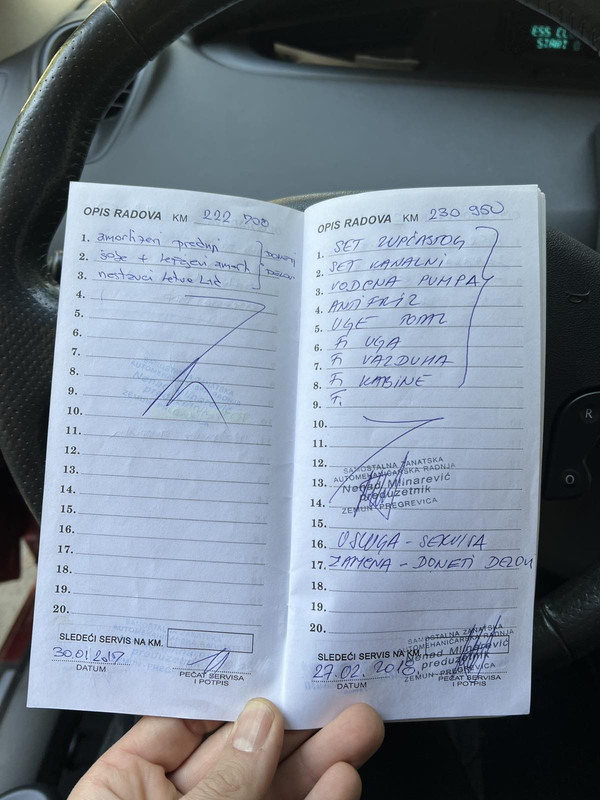 ESS CL
START
OPIS RADOVA KM 222 700
1. amortizeri prednji
2. šolje + ležajevi amort DONETI
3. letve DELOVI
4.
5.
6.
7.
8.
9.
10.
11.
12.
13.
14.
15.
16.
17.
18.
19.
20.
SLEDEĆI SERVIS NA KM.
DATUM
PEČAT SERVISA
I POTPIS
OPIS RADOVA KM 230 950
1. SET ZUPČASTOG
2. SET KANALNI
3. VODENA PUMPA
4. ANTIFRIZ
5. UGE TOTAL
6. F. UGA
7. F. VAZDUHA
8. F. KABINE
9. F.
10.
11.
12.
13.
14.
15.
16. USLUGA - SERVISA
17. ZAMENA - DONETI DELOVI
18.
19.
20.
SAMOSTALNA ZANATSKA
AUTOMEHANIČARSKA RADNJA
Nenad Mlinarević
preduzetnik
ZEMUN, PREGREVICA
SLEDEĆI SERVIS NA KM.
27.02.
DATUM
SAMOSTALNA ZANATSKA
AUTOMEHANIČARSKA RADNJA
Nenad Mlinarević
preduzetnik
ZEMUN, PREGREVICA
PEČAT SERVISA
I POTPIS
R
O